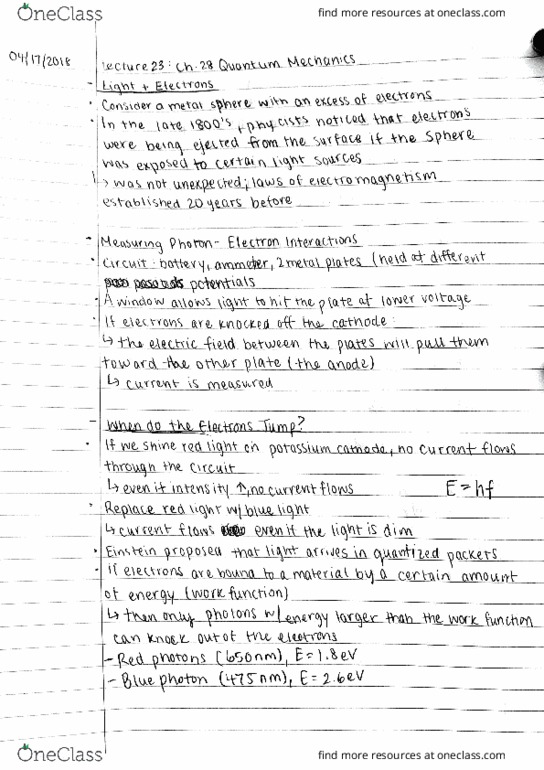 OneClass
find more resources at oneclass.com
04/17/2018
Lecture 23: Ch. 28 Quantum Mechanics
- Light + Electrons
• Consider a metal sphere with an excess of electrons
• In the late 1800's, physicists noticed that electrons
were being ejected from the surface if the sphere
was exposed to certain light sources
↳ was not unexpected; laws of electromagnetism
established 20 years before
- Measuring Photon-Electron Interactions
• Circuit: battery, ammeter, 2 metal plates (held at different
potentials
• A window allows light to hit the plate at lower voltage
• If electrons are knocked off the cathode:
↳ the electric field between the plates will pull them
toward the other plate (the anode)
↳ current is measured
- When do the Electrons Jump?
• If we shine red light on potassium cathode, no current flows
through the circuit
↳ even if intensity ↑, no current flows
E = hf
• Replace red light w/ blue light
↳ current flows even if the light is dim
• Einstein proposed that light arrives in quantized packets
• if electrons are bound to a material by a certain amount
of energy (work function)
↳ then only photons w/ energy larger than the work function
can knock out of the electrons
- Red photons (650nm), E = 1.8eV
- Blue photon (475nm), E = 2.6eV
OneClass
find more resources at oneclass.com